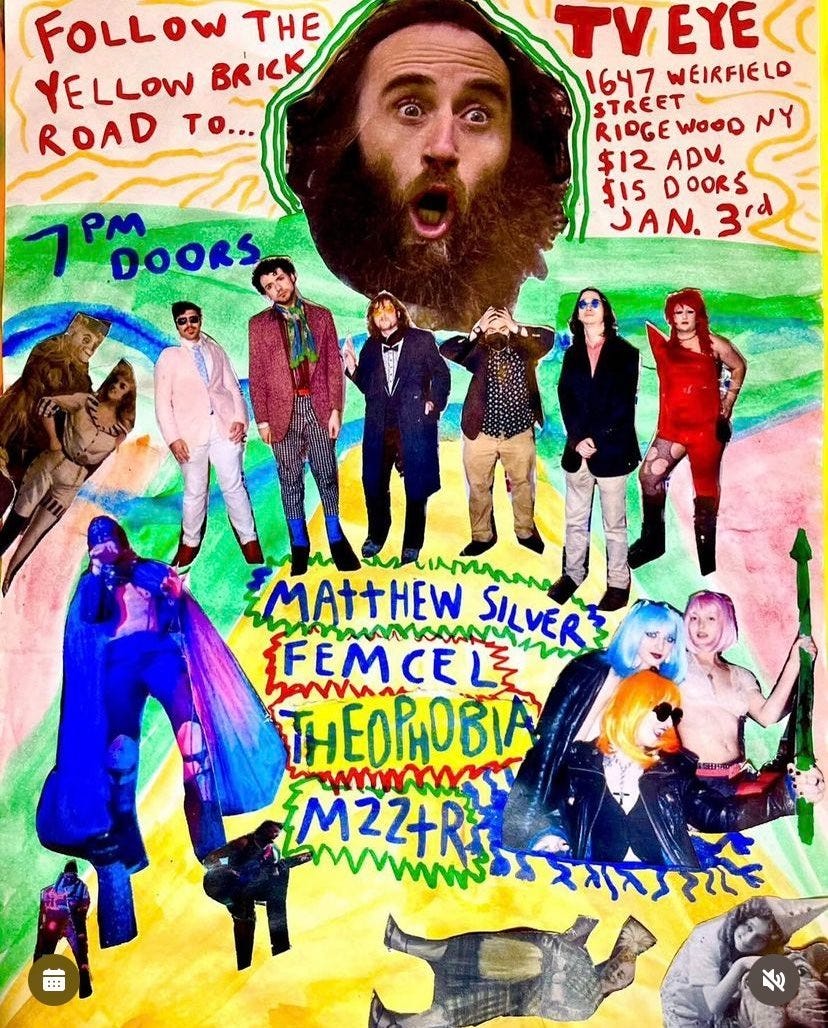 FOLLOW THE
YELLOW BRICK
ROAD TO...
TV EYE
1647 WEIRFIELD
STREET
RIDGEWOOD NY
$12 ADV.
$15 DOORS
JAN. 3rd
7PM
DOORS
MATTHEW SILVER
FEMCEL
THEOPHOBIA
MZZTR